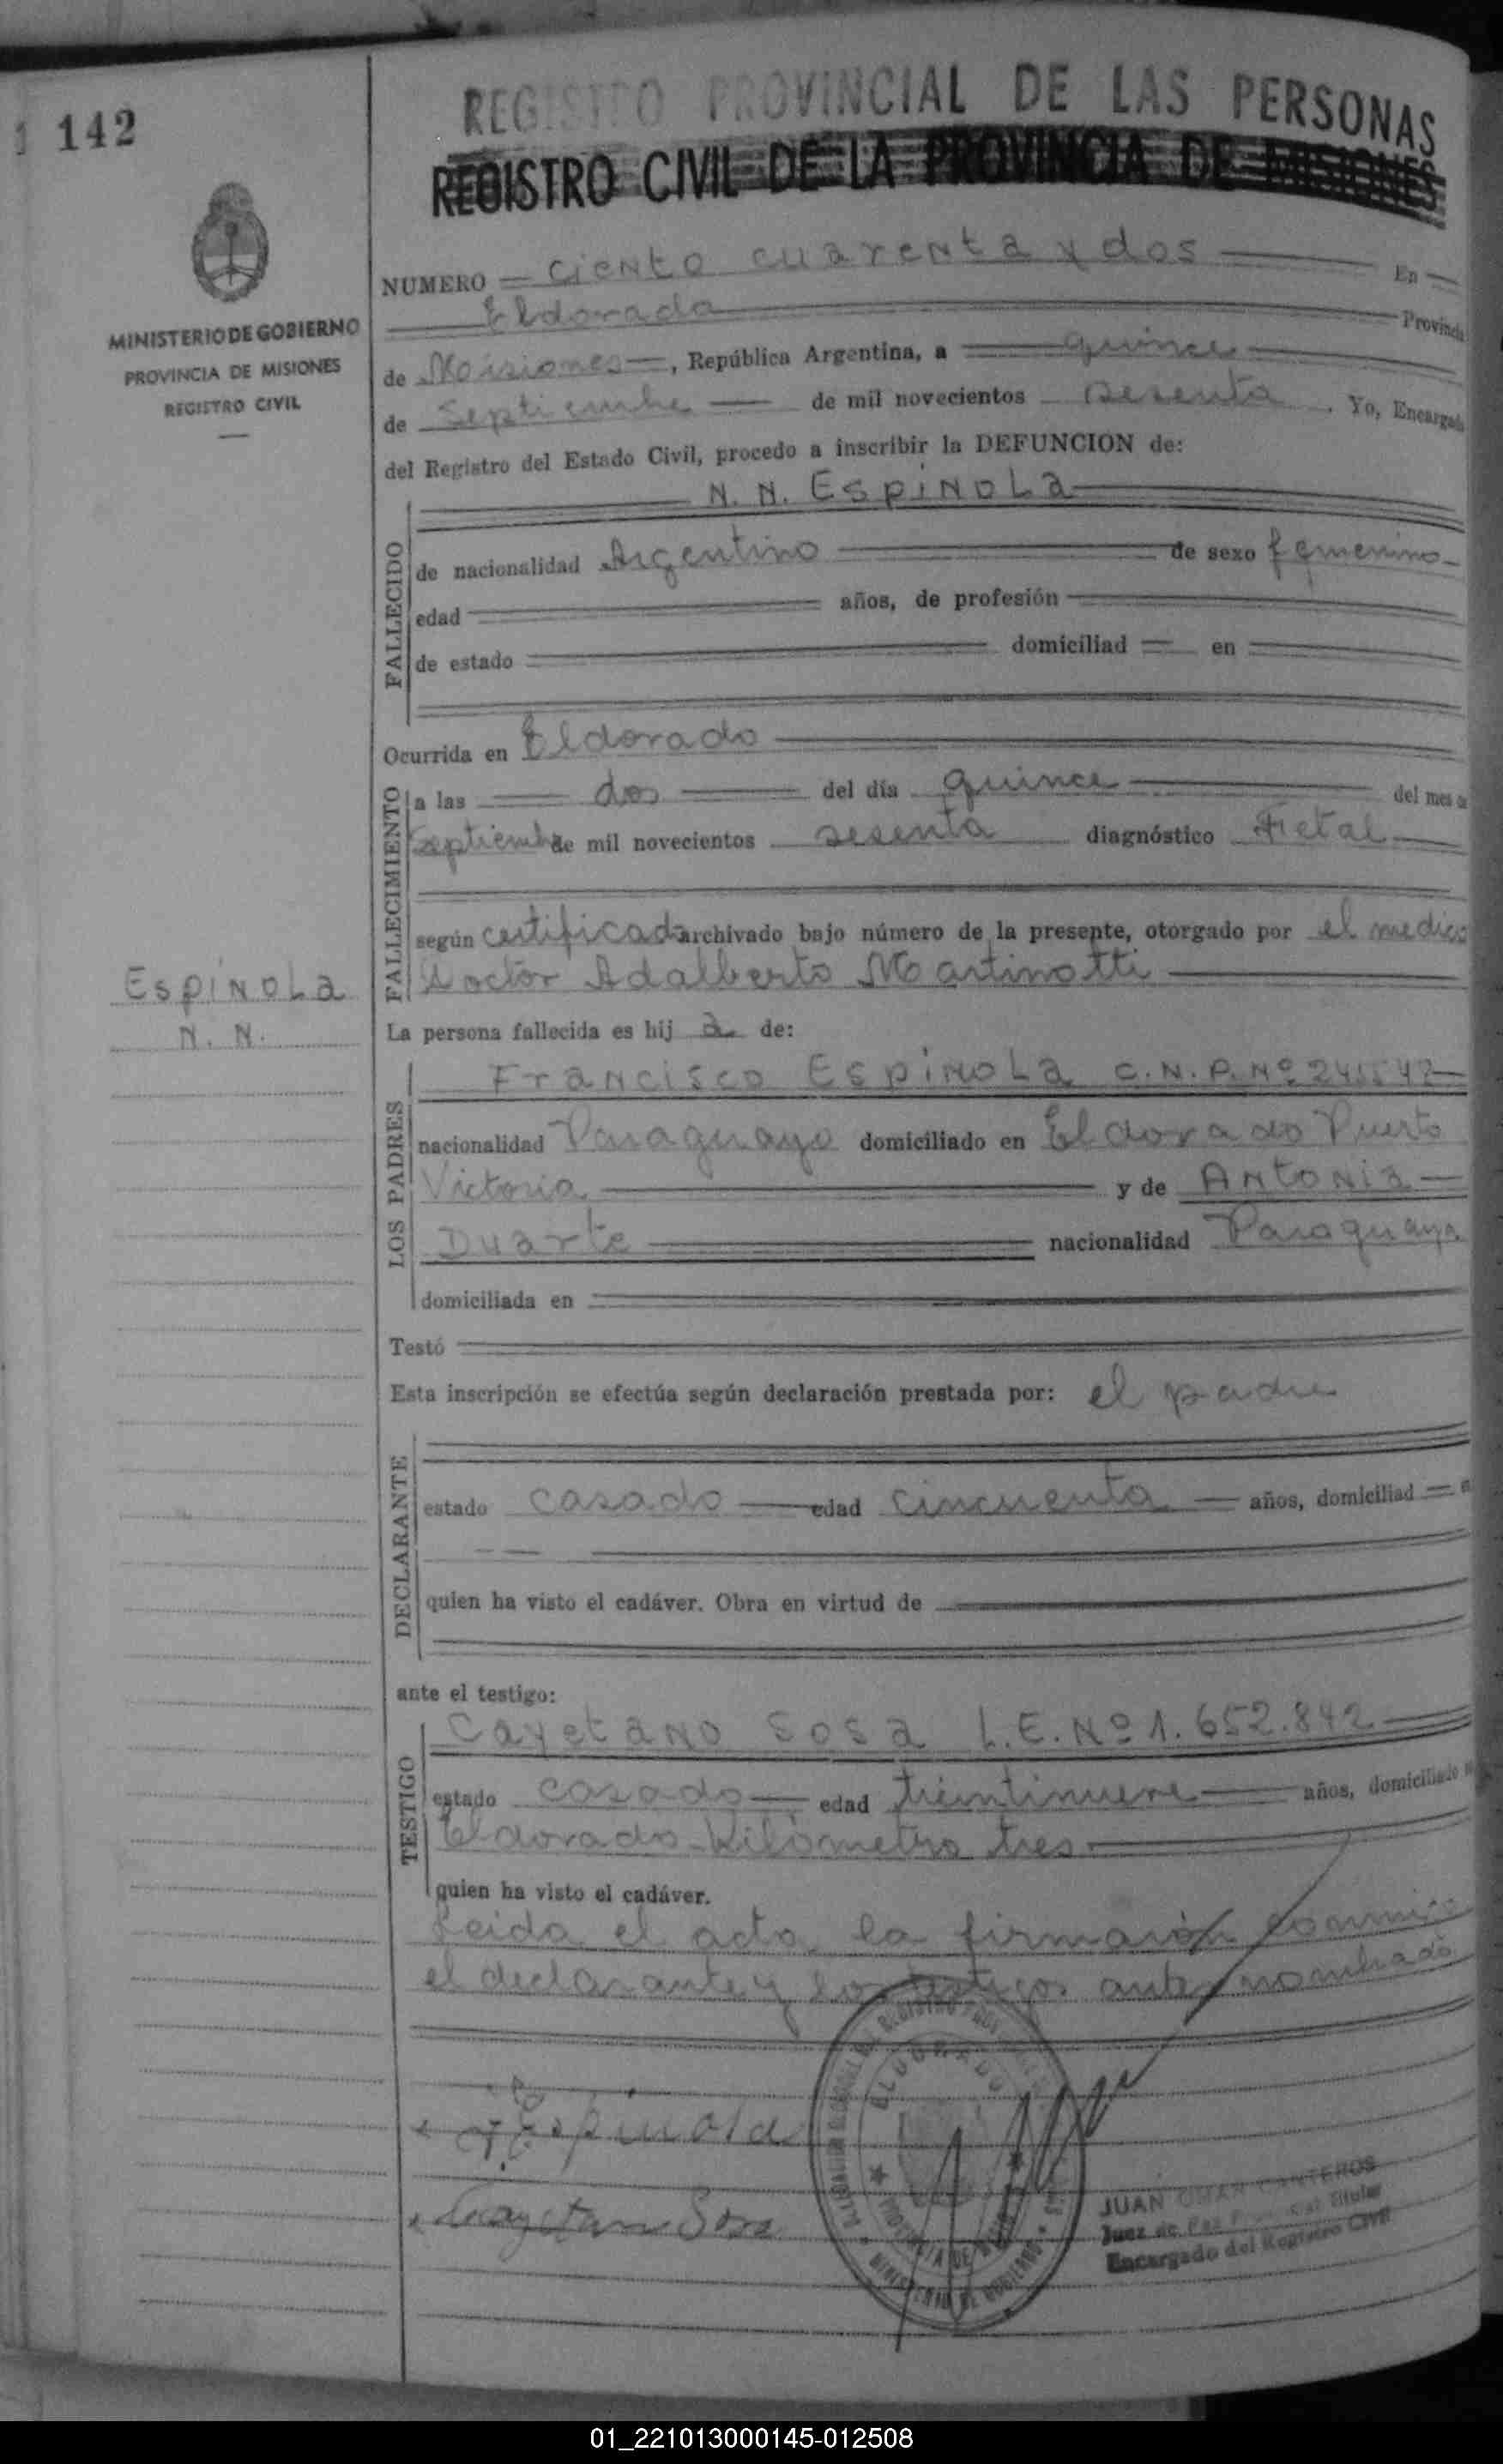 142
MINISTERIO DE GOBIERNO
PROVINCIA DE MISIONES
REGISTRO CIVIL
REGISTRO PROVINCIAL DE LAS PERSONAS
REGISTRO CIVIL DE LA PROVINCIA DE MISIONES
NUMERO ciento cuarenta y dos En
Eldorado Provincia
de Misiones, República Argentina, a quince
de Septiembre de mil novecientos sesenta. Yo, Encargado
del Registro del Estado Civil, procedo a inscribir la DEFUNCION de:
N. N. Espínola
FALLECIDO
de nacionalidad Argentino de sexo femenino
edad años, de profesión
de estado domiciliad en
Ocurrida en Eldorado
FALLECIMIENTO
a las dos del día quince del mes de
septiembre de mil novecientos sesenta diagnóstico Fetal
según certificado archivado bajo número de la presente, otorgado por el medico
Doctor Adalberto Martinotti
Espínola
N. N.
La persona fallecida es hij a de:
LOS PADRES
Francisco Espínola C.N.P. Nº
nacionalidad Paraguayo domiciliado en Eldorado Puerto
Victoria y de Antonia
Duarte nacionalidad Paraguaya
domiciliada en
Testó
Esta inscripción se efectúa según declaración prestada por: el padre
DECLARANTE
estado casado edad cincuenta años, domiciliad
quien ha visto el cadáver. Obra en virtud de
ante el testigo:
TESTIGO
Cayetano Sosa L.E. Nº 1.652.842
estado casado edad treintinueve años, domiciliado
Eldorado Kilómetro tres
quien ha visto el cadáver.
Leida el acta la firmarón conmigo
el declarante y los testigos antes nombrado
ELDORADO
MINISTERIO DE GOBIERNO
F Espinola
Cayetano Sosa
JUAN OMAR CANTEROS
Juez de Paz Titular
Encargado del Registro Civil
01_221013000145-012508